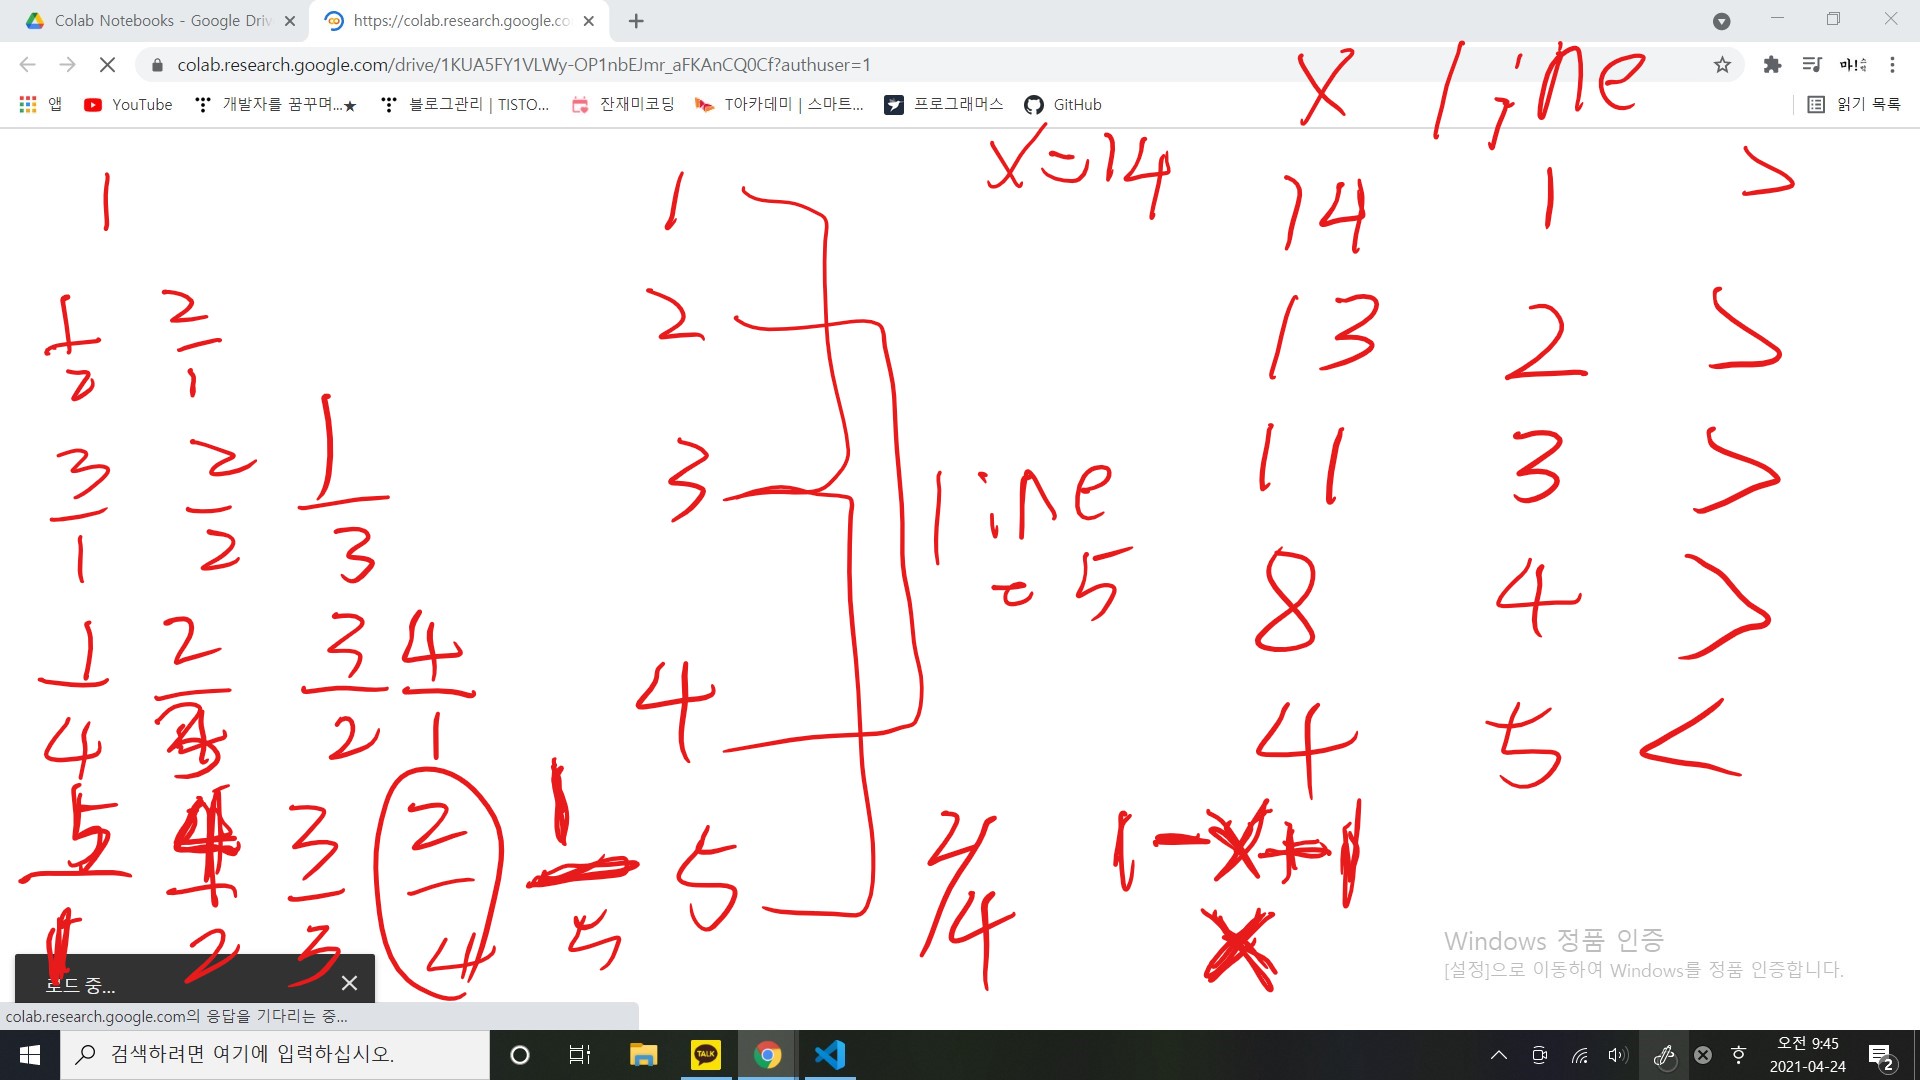 Colab Notebooks - Google Driv
https://colab.research.google.co
colab.research.google.com/drive/1KUA5FY1VLWy-OP1nbEJmr_aFKAnCQ0Cf?authuser=1
앱 YouTube 개발자를 꿈꾸며...★ 블로그관리 | TISTO... 잔재미코딩 T아카데미 | 스마트... 프로그래머스 GitHub 읽기 목록
x line
x=14
1 1 14 1 >
1/2 2/1 2 13 2 >
3/1 2/2 1/3 3 11 3 >
line = 5
1/4 2/3 3/2 4/1 4 8 4 >
4 5 <
5/1 4/2 3/3 2/4 1/5 5 2/4
Windows 정품 인증
[설정]으로 이동하여 Windows를 정품 인증합니다.
로드 중...
colab.research.google.com의 응답을 기다리는 중...
검색하려면 여기에 입력하십시오.
TALK
오전 9:45
2021-04-24
2